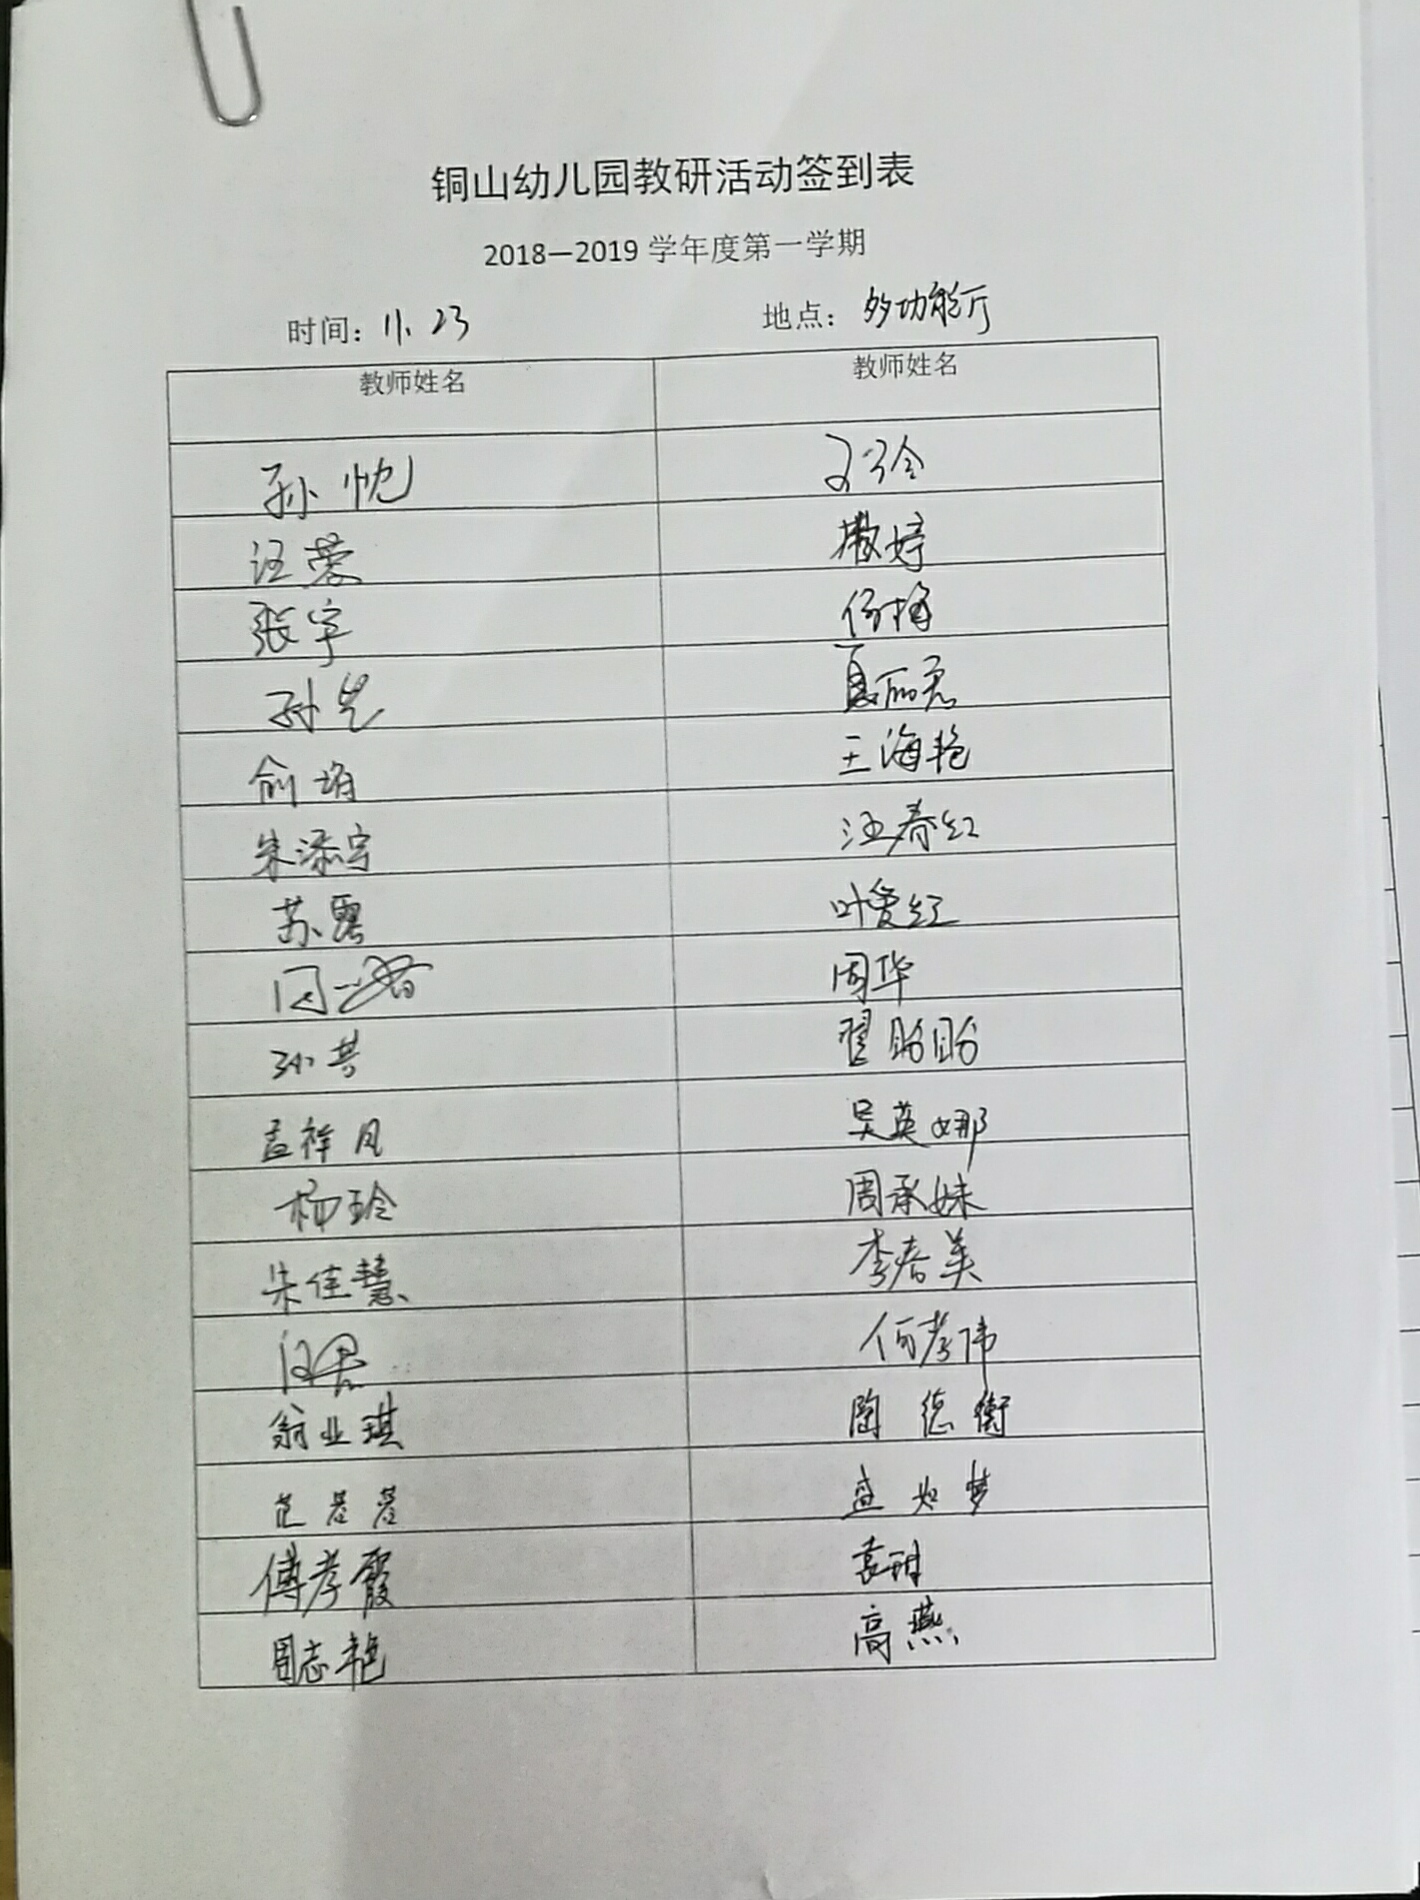 铜山幼儿园教研活动签到表
2018—2019 学年度第一学期
时间: 11. 23 地点: 多功能厅
教师姓名 教师姓名
孙忱
汪蓉 撒婷
张宇 何梅
孙芝 夏丽君
俞培 王海艳
朱添宇 汪春红
苏墨 叶爱红
周华
翟盼盼
孟祥月 吴英娜
杨玲 周承妹
朱佳慧 李春美
何孝伟
翁业琪 陶德衡
范蓉蓉 盛如梦
傅孝霞 袁甜
周志艳 高燕